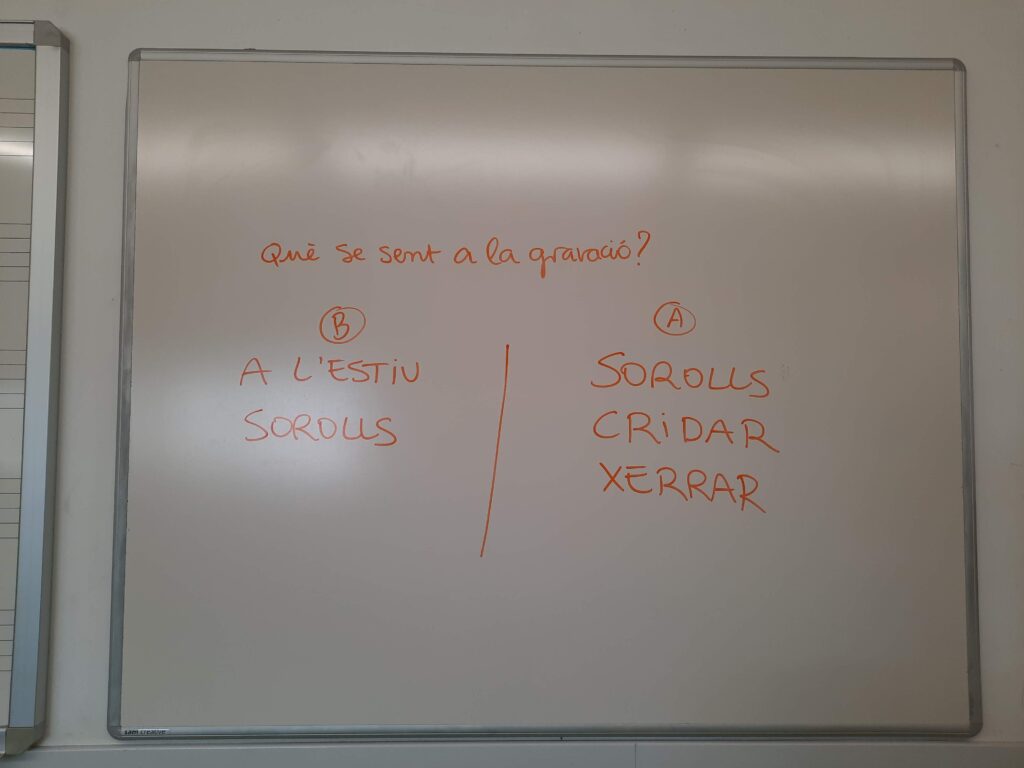 Què se sent a la gravació?
B
A L'ESTIU
SOROLLS
A
SOROLLS
CRIDAR
XERRAR
sam creative